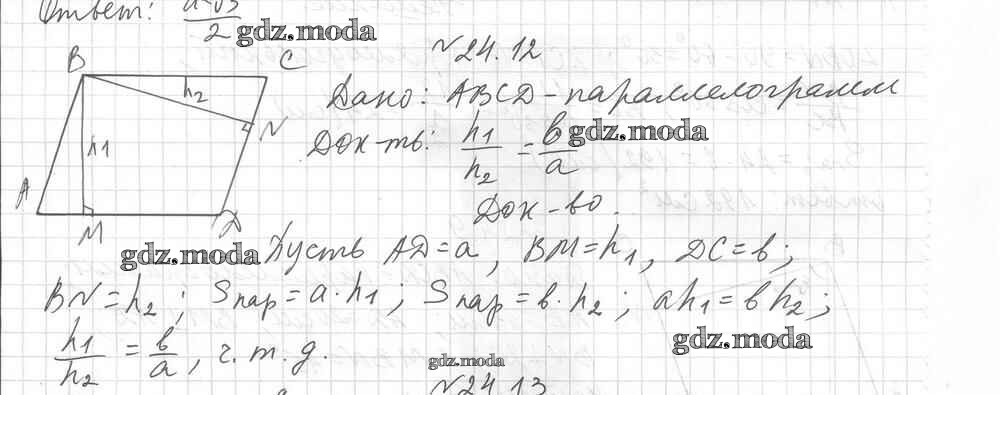 Ответ:
gdz.moda
№24.12
B C
h2
N
h1
A M D
Дано: ABCD - параллелограмм
Док-ть: h1/h2 = b/a
gdz.moda
Док-во.
gdz.moda
Пусть AD=a, BM=h1, DC=b;
BN=h2; Sпар=a·h1; Sпар=b·h2; ah1=bh2;
gdz.moda
h1/h2 = b/a, ч.т.д.
gdz.moda
№24.13